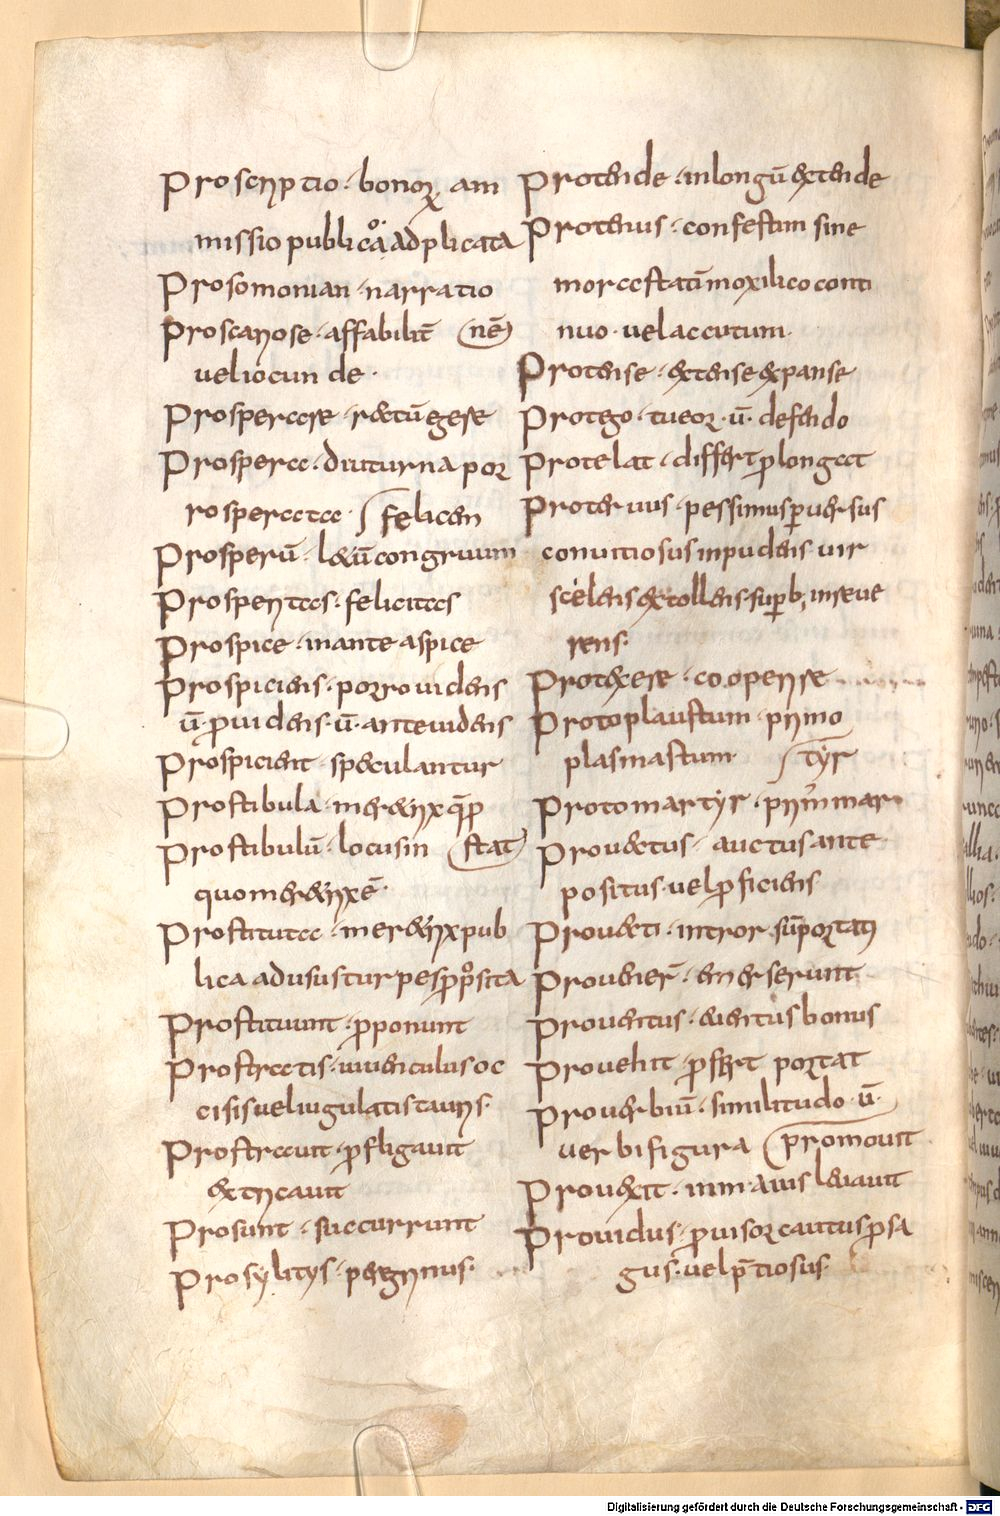 Proscriptio · bonoꝝ am
missio publica adplicata
Prosomonian · narratio
Proscariose · affabilit̄ nē
vel iocun de ·
Prosperare · r&tū gere
Prospera · diuturna por
ro sperata · felicem
Prosperū · l&ū congruum
Prosperitas · felicitas
Prospice · inante aspice
Prospiciens · porro uidens
ū · p̄uidens · ū · anteuidens
Prospicient · speculantur
Prostibula · mer&rix q̄ p̄
Prostibulū · locus in stat
quo mer&rix ē ·
Prostituta · mer&rix pub
lica ad usus turpes p̄posita
Prostituunt · p̄ponunt
Prostratis · iuuenculus oc
cisis vel iugulatis tauris ·
Prostrauit · p̄fligauit
&tricauit
Prosunt · succurrunt
Prosylitys · peregrinus ·
Protende · in longū &tende
Protenus · confestim sine
mora statī mox ilico conti
nuo · vel accutum ·
Protense · &tense &panse
Protego · tueor · ū · defendo
Protelat · differt p̄longat
Proteruus · pessimus p̄uersus
conuitiosus inpudens uir
scelens &tollens sup̄b; inseue
rens ·
Prot&ere · cooperire
Protoplaustum · primo
plasmastum tyr
Protomartyr · prim̄ mar
Prouectus · auctus ante
positus · vel p̄ficiens
Prou&ti · intror sūportatꝰ
Prouenier̄ · emerserunt
Prouentus · euentus bonus
Prouehit · p̄fert portat
Prouerbiū · similitudo · ū ·
verbi figura promouit
Prou&it · in maius leuauit
Prouidus · p̄uisor cautus p̄sa
gus · vel p̄tiosus ·
Digitalisierung gefördert durch die Deutsche Forschungsgemeinschaft - DFG